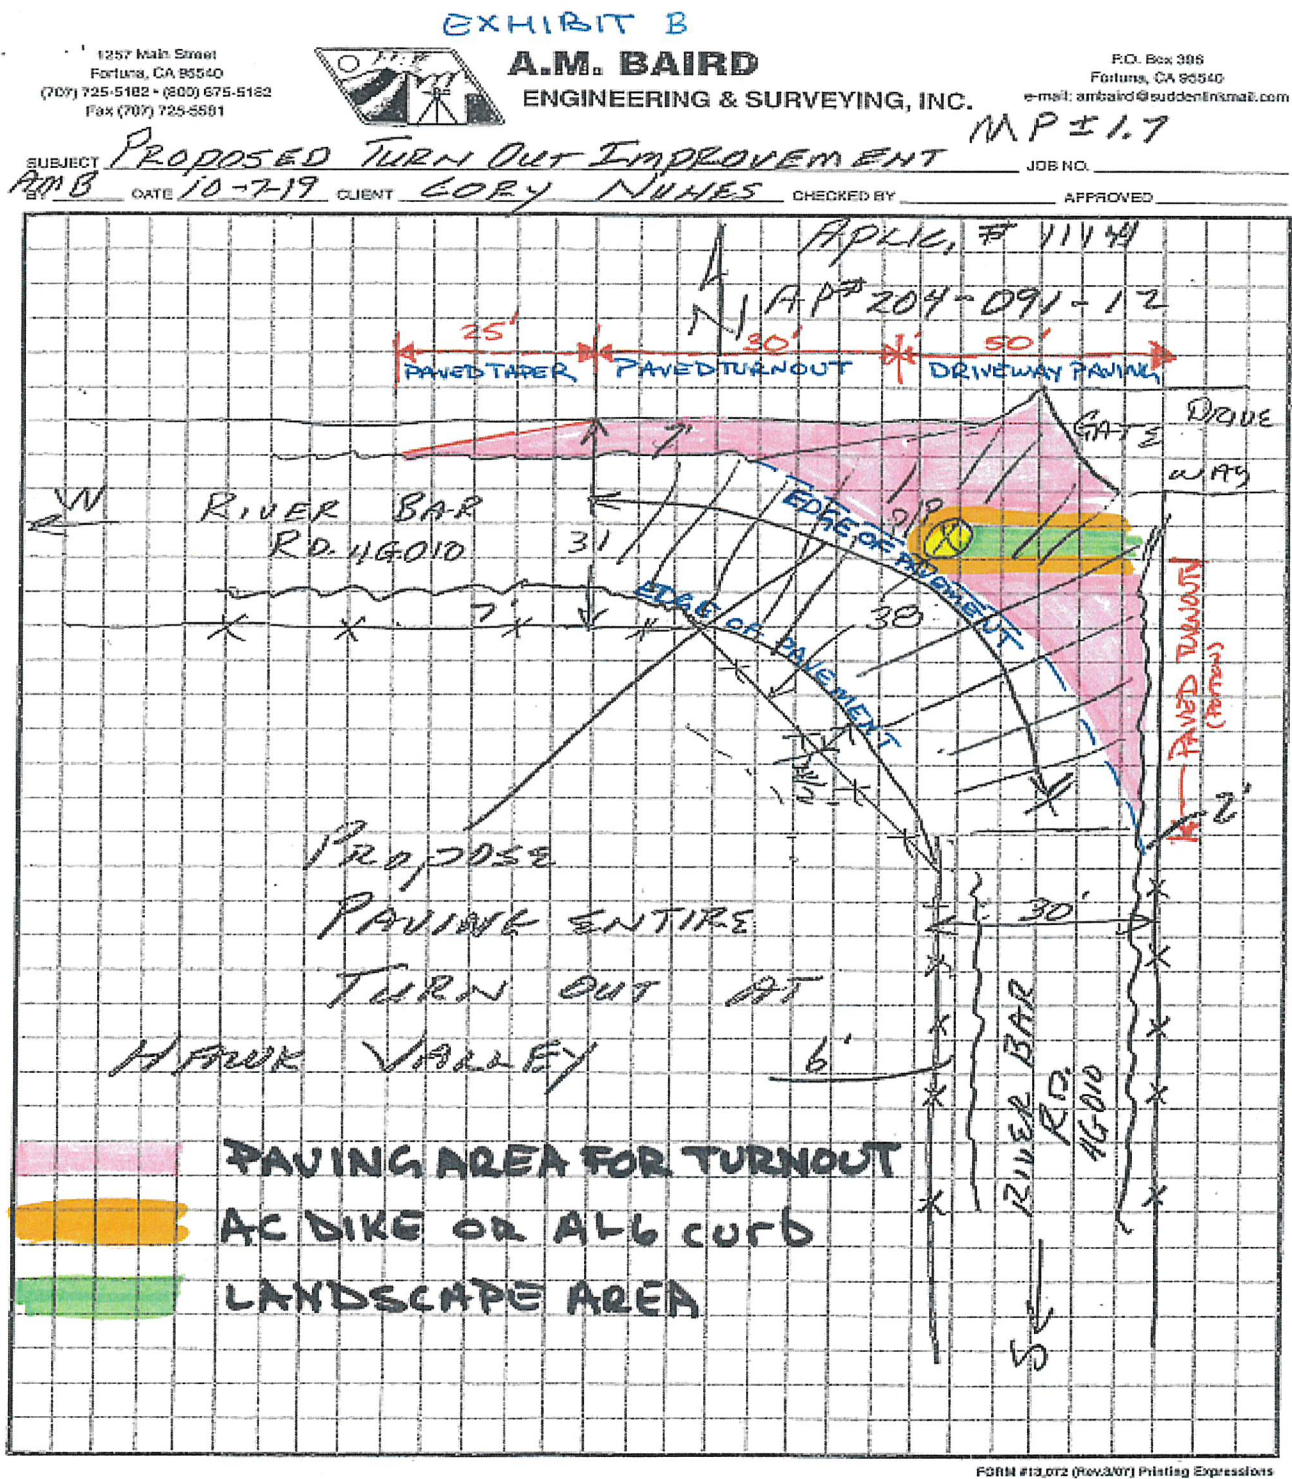 EXHIBIT B
1257 Main Street
Fortuna, CA 95540
(707) 725-5182 • (800) 675-5182
Fax (707) 725-5581
A.M. BAIRD
ENGINEERING & SURVEYING, INC.
P.O. Box 396
Fortuna, CA 95540
e-mail: ambaird@suddenlinkmail.com
MP ± 1.7
SUBJECT PROPOSED TURN OUT IMPROVEMENT JOB NO.
BY AMB DATE 10-7-19 CLIENT CORY NUNES CHECKED BY APPROVED
APLIC. # 11144
N AP# 204-091-12
25' 30' 50'
PAVED TAPER PAVED TURNOUT DRIVEWAY PAVING
GATE DRIVE
WAY
W
RIVER BAR
RD. 4G010
31
EDGE OF PAVEMENT
P/P
EDGE OF PAVEMENT
7'
38
PAVED TURNOUT
(PORTION)
2'
PROPOSE
PAVING ENTIRE
TURN OUT AT
HAWK VALLEY
30'
6'
RIVER BAR
RD.
4G010
S
PAVING AREA FOR TURNOUT
AC DIKE OR AL6 curb
LANDSCAPE AREA
FORM #13,072 (Rev.3/07) Printing Expressions